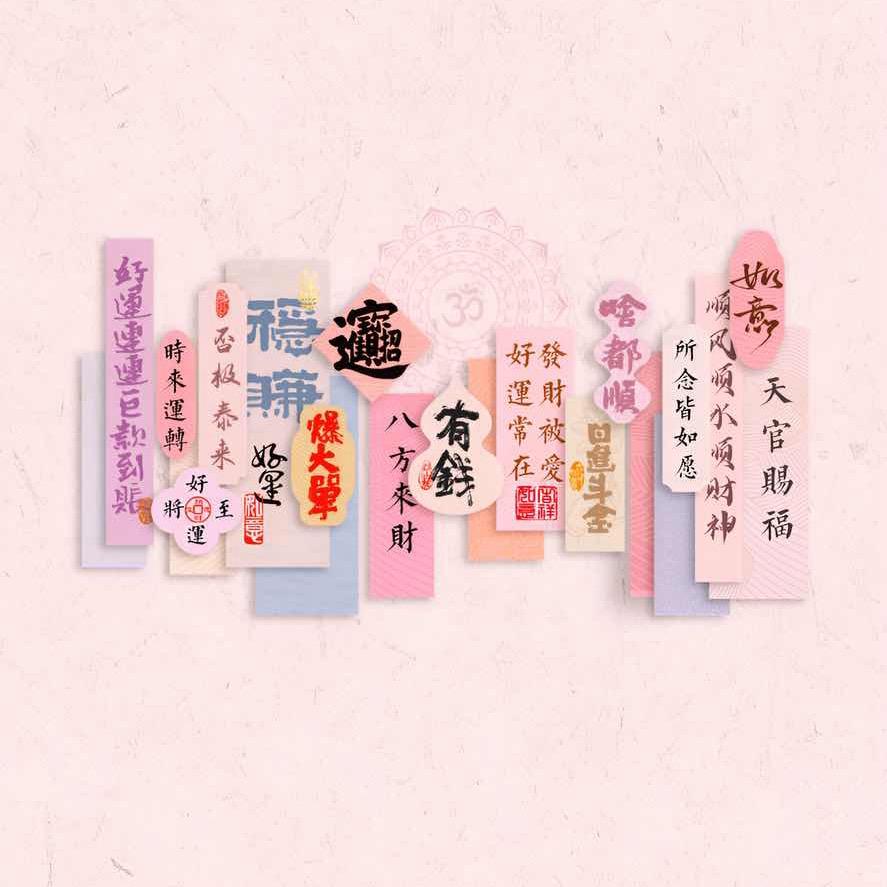 好運連連巨款到賬
時來運轉
好運將至
否极泰来
穩賺
好運
如意
爆大單
招財進寶
八方來財
有錢
發財被愛
好運常在
吉祥如意
日進斗金
啥都順
所念皆如愿
順风順水順财神
如意
天官賜福
ॐ